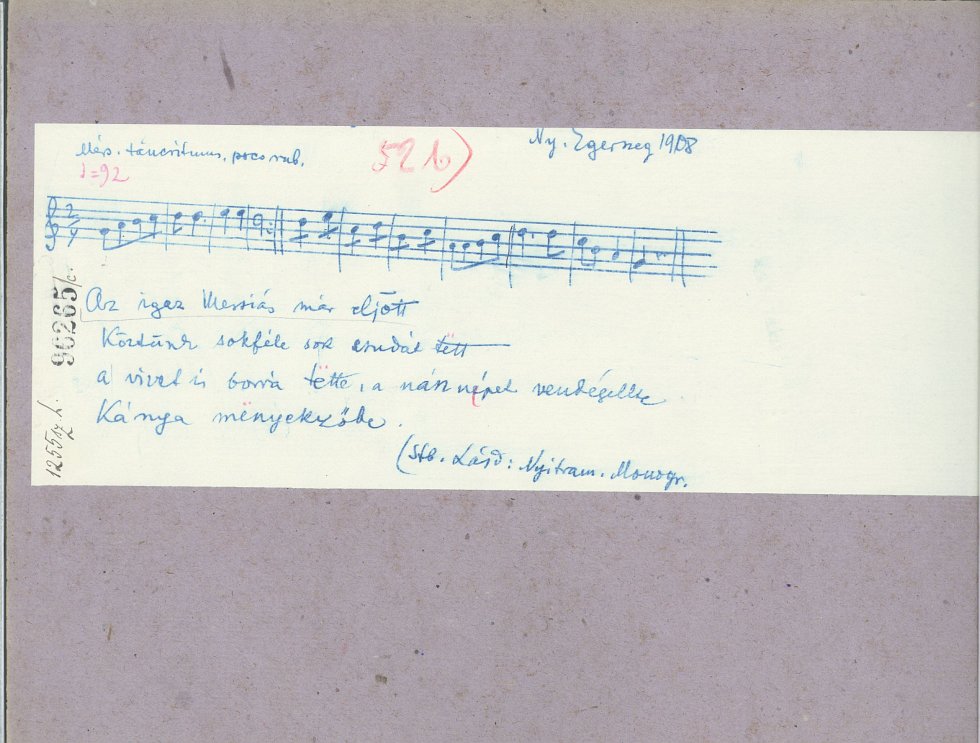 Mérs. táncritmus, poco rub.
♩=92
52 b)
Ny. Egerszeg 1908
2/4
Az igaz Messiás már eljött
Köztünk sokféle sok csudát tëtt
a vizet is borrá tëtte, a násznépet vendégelte
Kánya mënyekzőbe.
(Stb. Lásd: Nyitram. Monogr.
96265/c.
1255